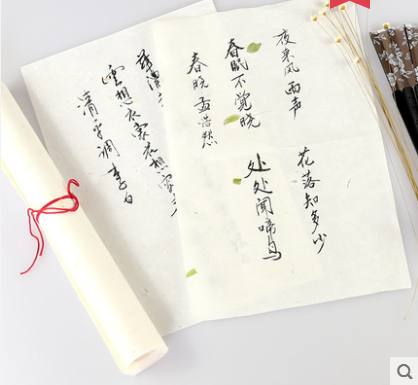 清平调 李白
雲想衣裳花想容
春晓 孟浩然
春眠不觉晓
处处闻啼鸟
夜来风雨声
花落知多少